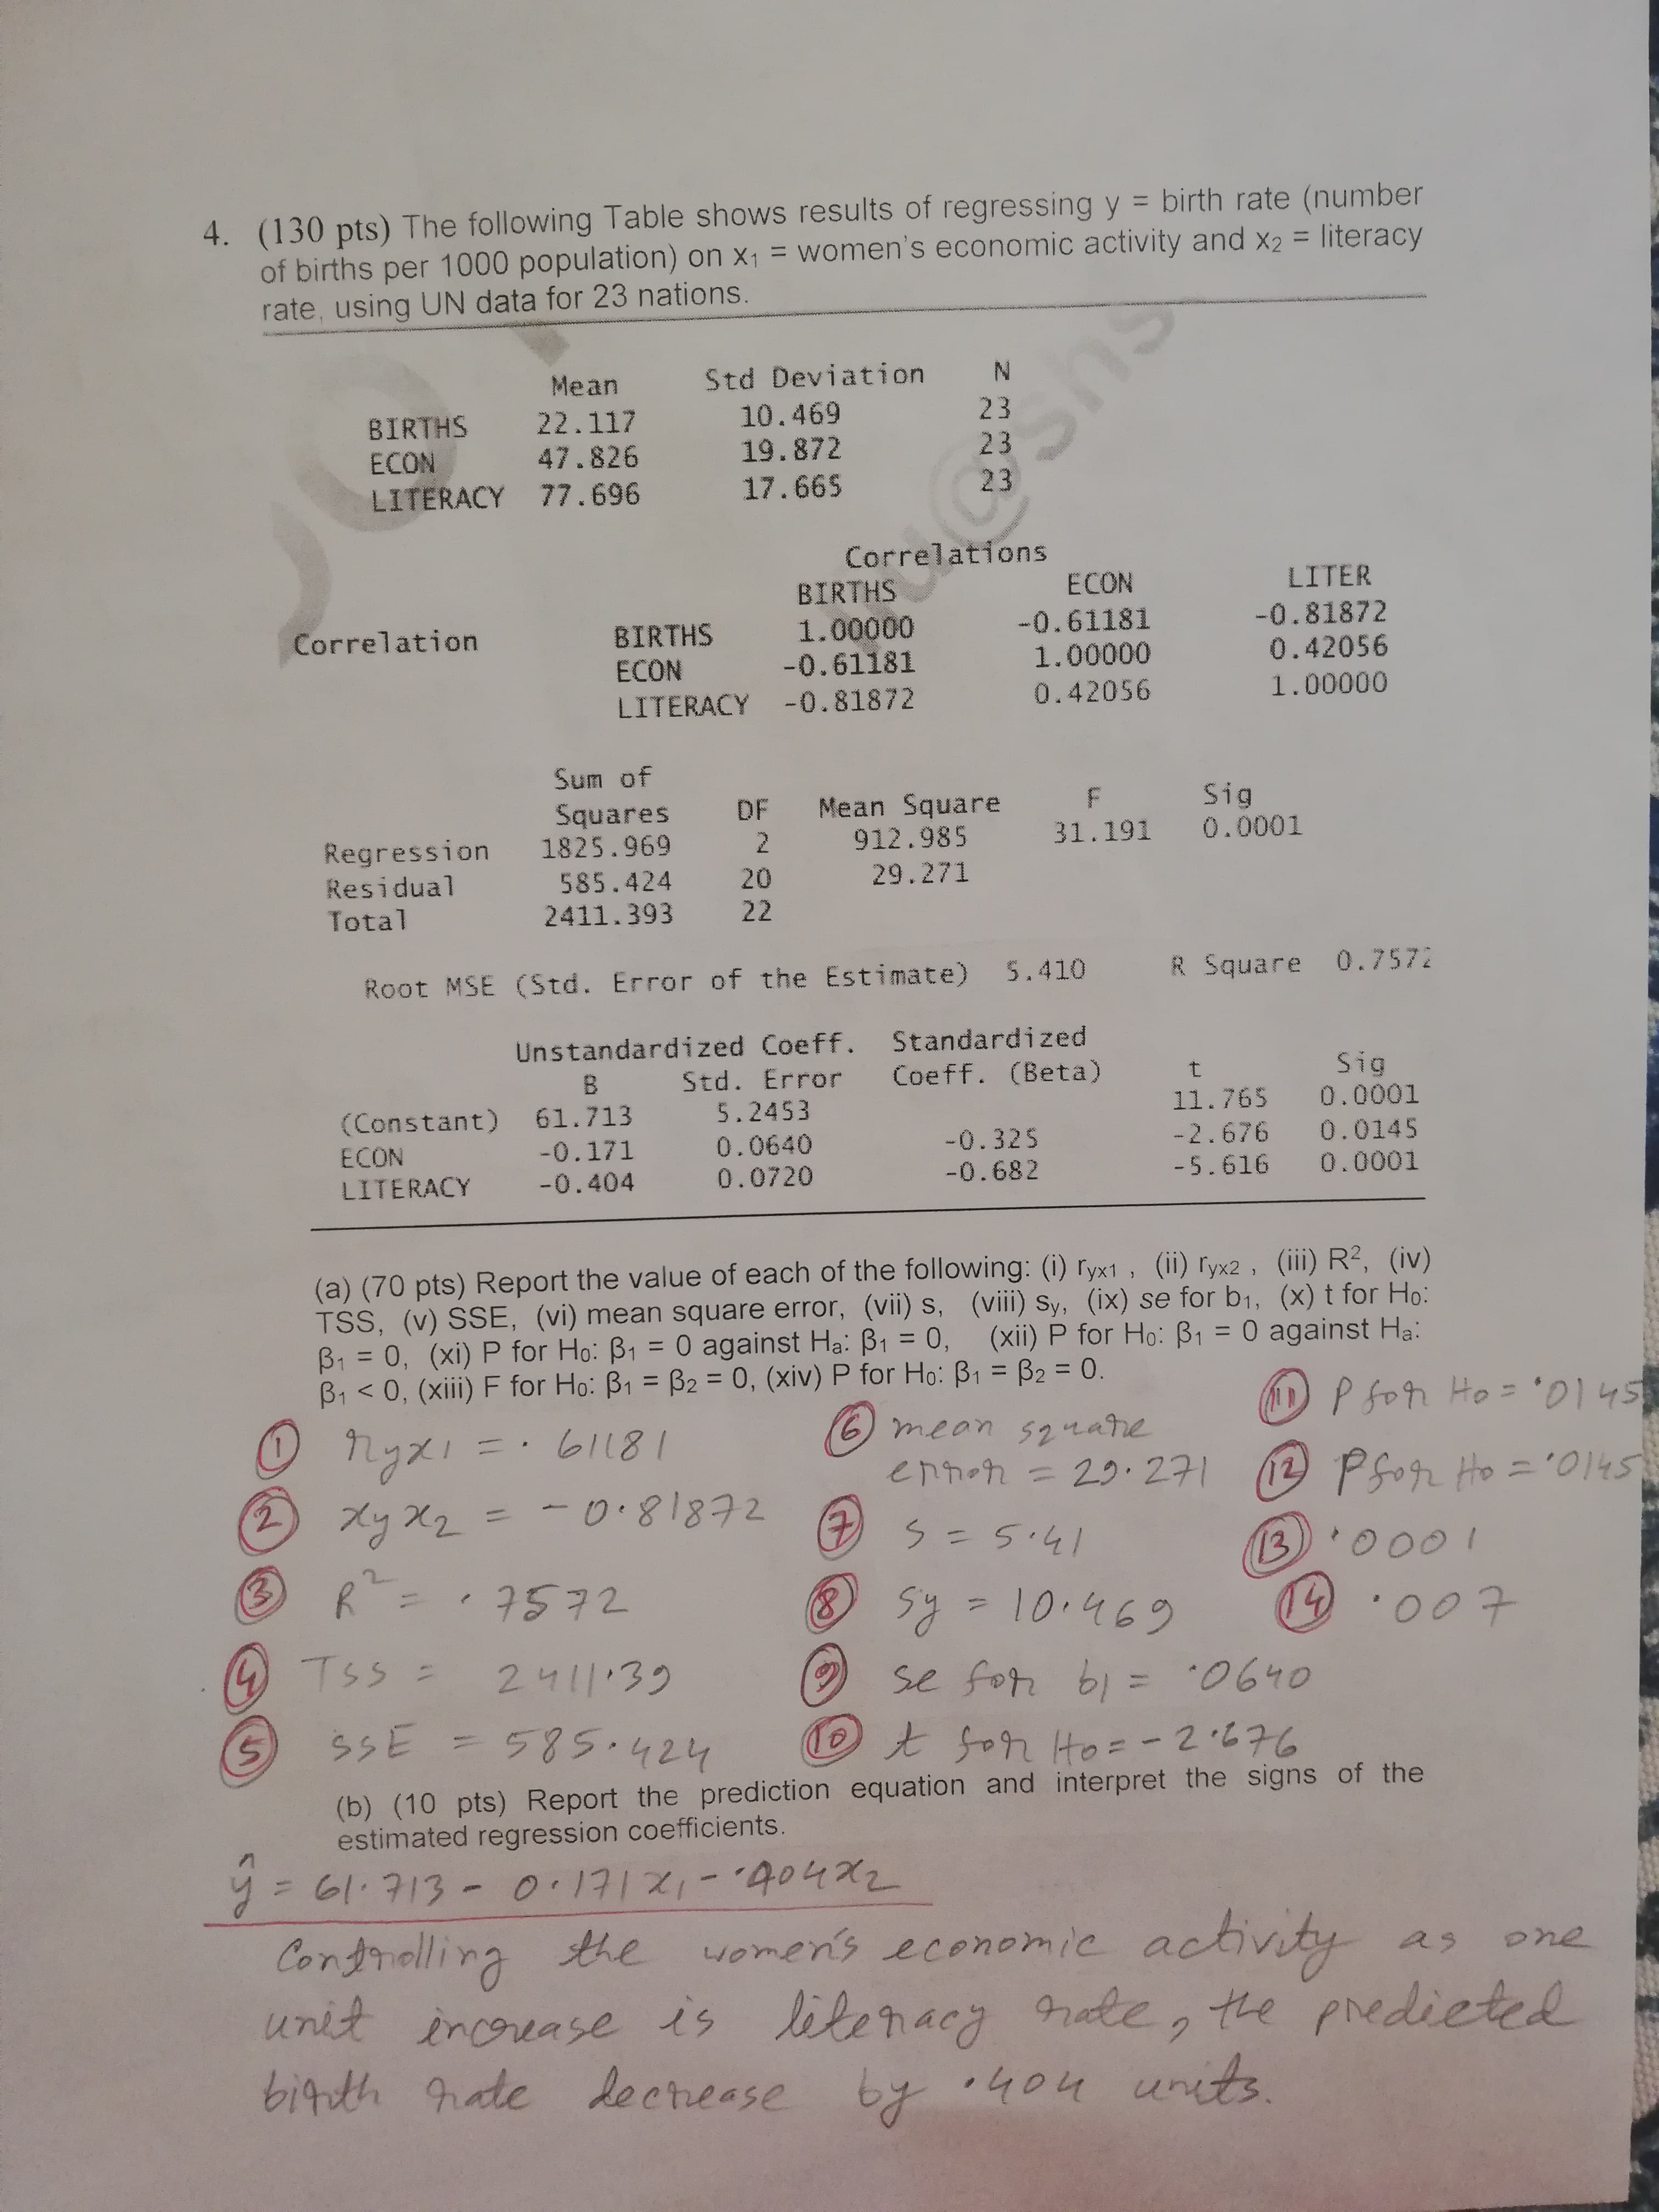 4. (130 pts) The following Table shows results of regressing y = birth rate (number
of births per 1000 population) on x₁ = women's economic activity and x₂ = literacy
rate, using UN data for 23 nations.
Mean Std Deviation N
BIRTHS 22.117 10.469 23
ECON 47.826 19.872 23
LITERACY 77.696 17.665 23
Correlations
BIRTHS ECON LITER
Correlation BIRTHS 1.00000 -0.61181 -0.81872
ECON -0.61181 1.00000 0.42056
LITERACY -0.81872 0.42056 1.00000
Sum of
Squares DF Mean Square F Sig
Regression 1825.969 2 912.985 31.191 0.0001
Residual 585.424 20 29.271
Total 2411.393 22
Root MSE (Std. Error of the Estimate) 5.410 R Square 0.7572
Unstandardized Coeff. Standardized
B Std. Error Coeff. (Beta) t Sig
(Constant) 61.713 5.2453 11.765 0.0001
ECON -0.171 0.0640 -0.325 -2.676 0.0145
LITERACY -0.404 0.0720 -0.682 -5.616 0.0001
(a) (70 pts) Report the value of each of the following: (i) ryx1 , (ii) ryx2 , (iii) R², (iv)
TSS, (v) SSE, (vi) mean square error, (vii) s, (viii) sy, (ix) se for b₁, (x) t for H₀:
β₁ = 0, (xi) P for H₀: β₁ = 0 against Hₐ: β₁ = 0, (xii) P for H₀: β₁ = 0 against Hₐ:
β₁ < 0, (xiii) F for H₀: β₁ = β₂ = 0, (xiv) P for H₀: β₁ = β₂ = 0.
① ryx₁ = .61181
② xyx₂ = -0.81872
③ R² = .7572
④ TSS = 2411.39
⑤ SSE = 585.424
⑥ mean square
error = 29.271
⑦ s = 5.41
⑧ sy = 10.469
⑨ se for b₁ = .0640
⑩ t for H₀ = -2.676
⑪ P for H₀ = .0145
⑫ P for H₀ = .0145
⑬ .0001
⑭ .007
(b) (10 pts) Report the prediction equation and interpret the signs of the
estimated regression coefficients.
ŷ = 61.713 - 0.171x₁ - .404x₂
Controlling the women's economic activity as one
unit increase is literacy rate, the predicted
birth rate decrease by .404 units.